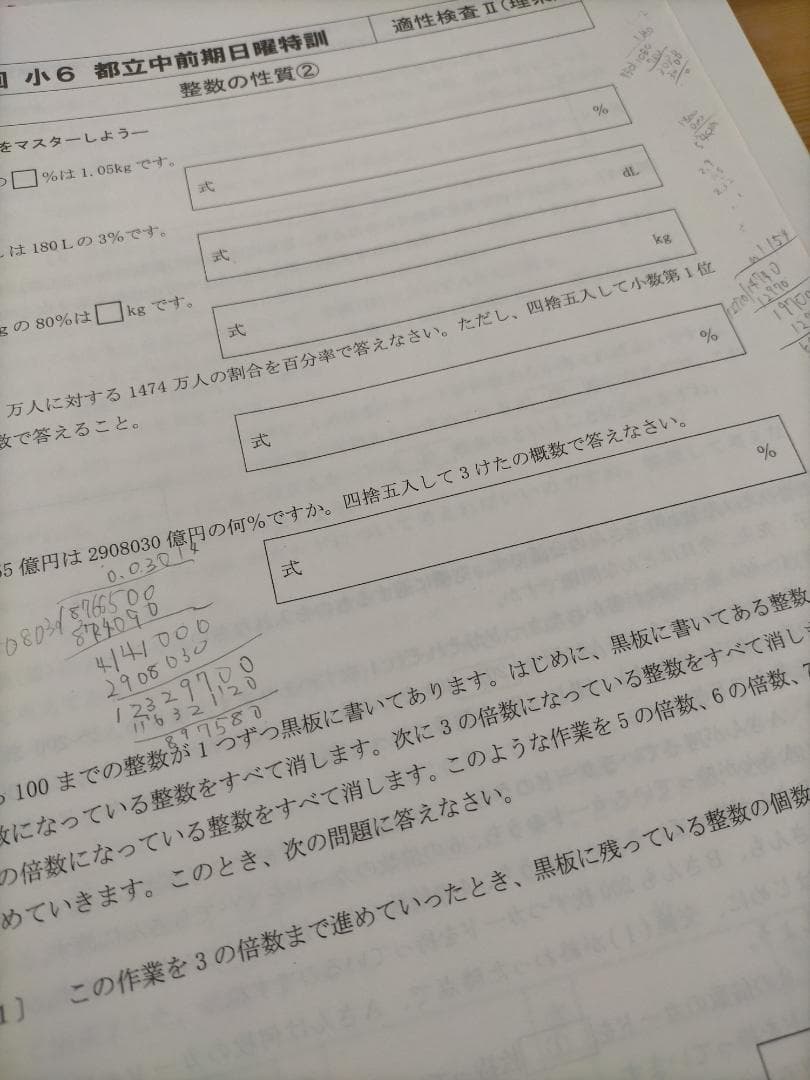 小6 都立中前期日曜特訓
適性検査Ⅱ(理系
整数の性質②
をマスターしよう―
□%は1.05kgです。
式 %
は180Lの3%です。
式 dL
gの80%は□kgです。
式 kg
万人に対する1474万人の割合を百分率で答えなさい。ただし、四捨五入して小数第1位
数で答えること。
式 %
65億円は2908030億円の何%ですか。四捨五入して3けたの概数で答えなさい。
式 %
0.0301
08030
4141000
2908030
12329700
11632120
897580
100までの整数が1つずつ黒板に書いてあります。はじめに、黒板に書いてある整数
数になっている整数をすべて消します。次に3の倍数になっている整数をすべて消しま
の倍数になっている整数をすべて消します。このような作業を5の倍数、6の倍数、7
めていきます。このとき、次の問題に答えなさい。
1] この作業を3の倍数まで進めていったとき、黒板に残っている整数の個数